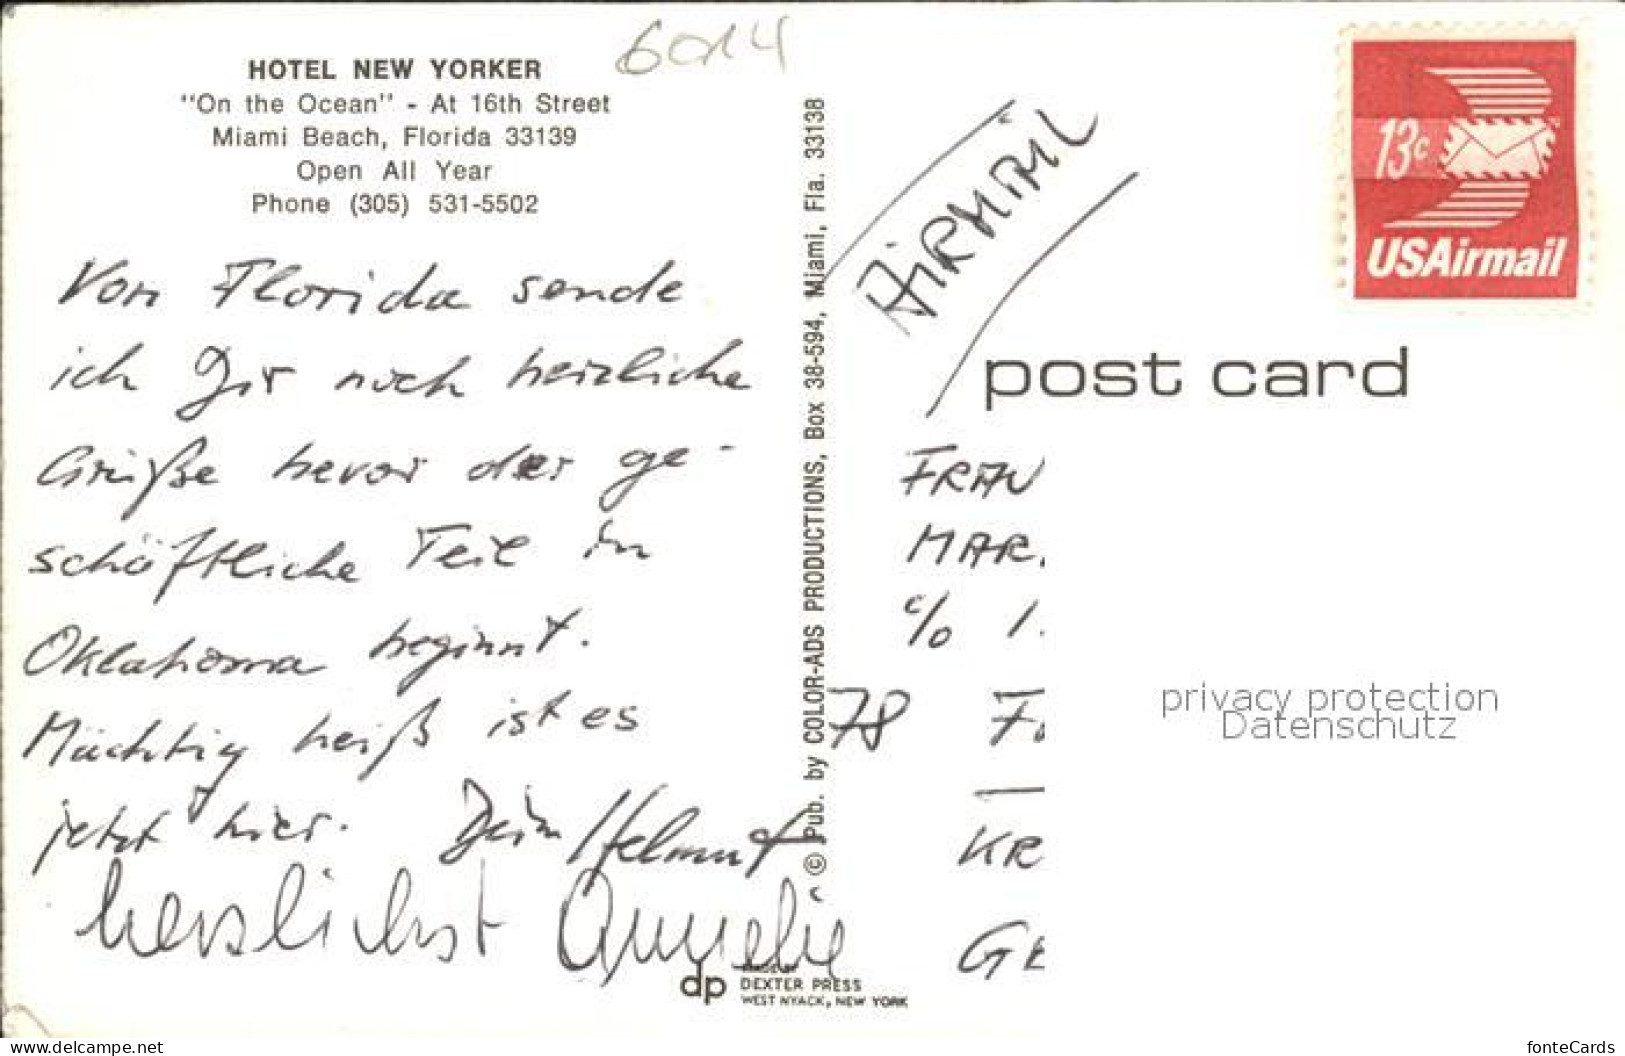 6014
HOTEL NEW YORKER
"On the Ocean" - At 16th Street
Miami Beach, Florida 33139
Open All Year
Phone (305) 531-5502
Von Florida sende
ich Dir noch herzliche
Grüße bevor der ge-
schäftliche Teil in
Oklahoma beginnt.
Mächtig heiß ist es
jetzt hier. Dein Helmut
herzlichst Annelie
© Pub. by COLOR-ADS PRODUCTIONS, Box 38-594, Miami, Fla. 33138
dp MADE BY
DEXTER PRESS
WEST NYACK, NEW YORK
AIRMAIL
13c
USAirmail
post card
FRAU
MAR.
c/o
78
KR
GE
privacy protection
Datenschutz
www.delcampe.net
fonteCards